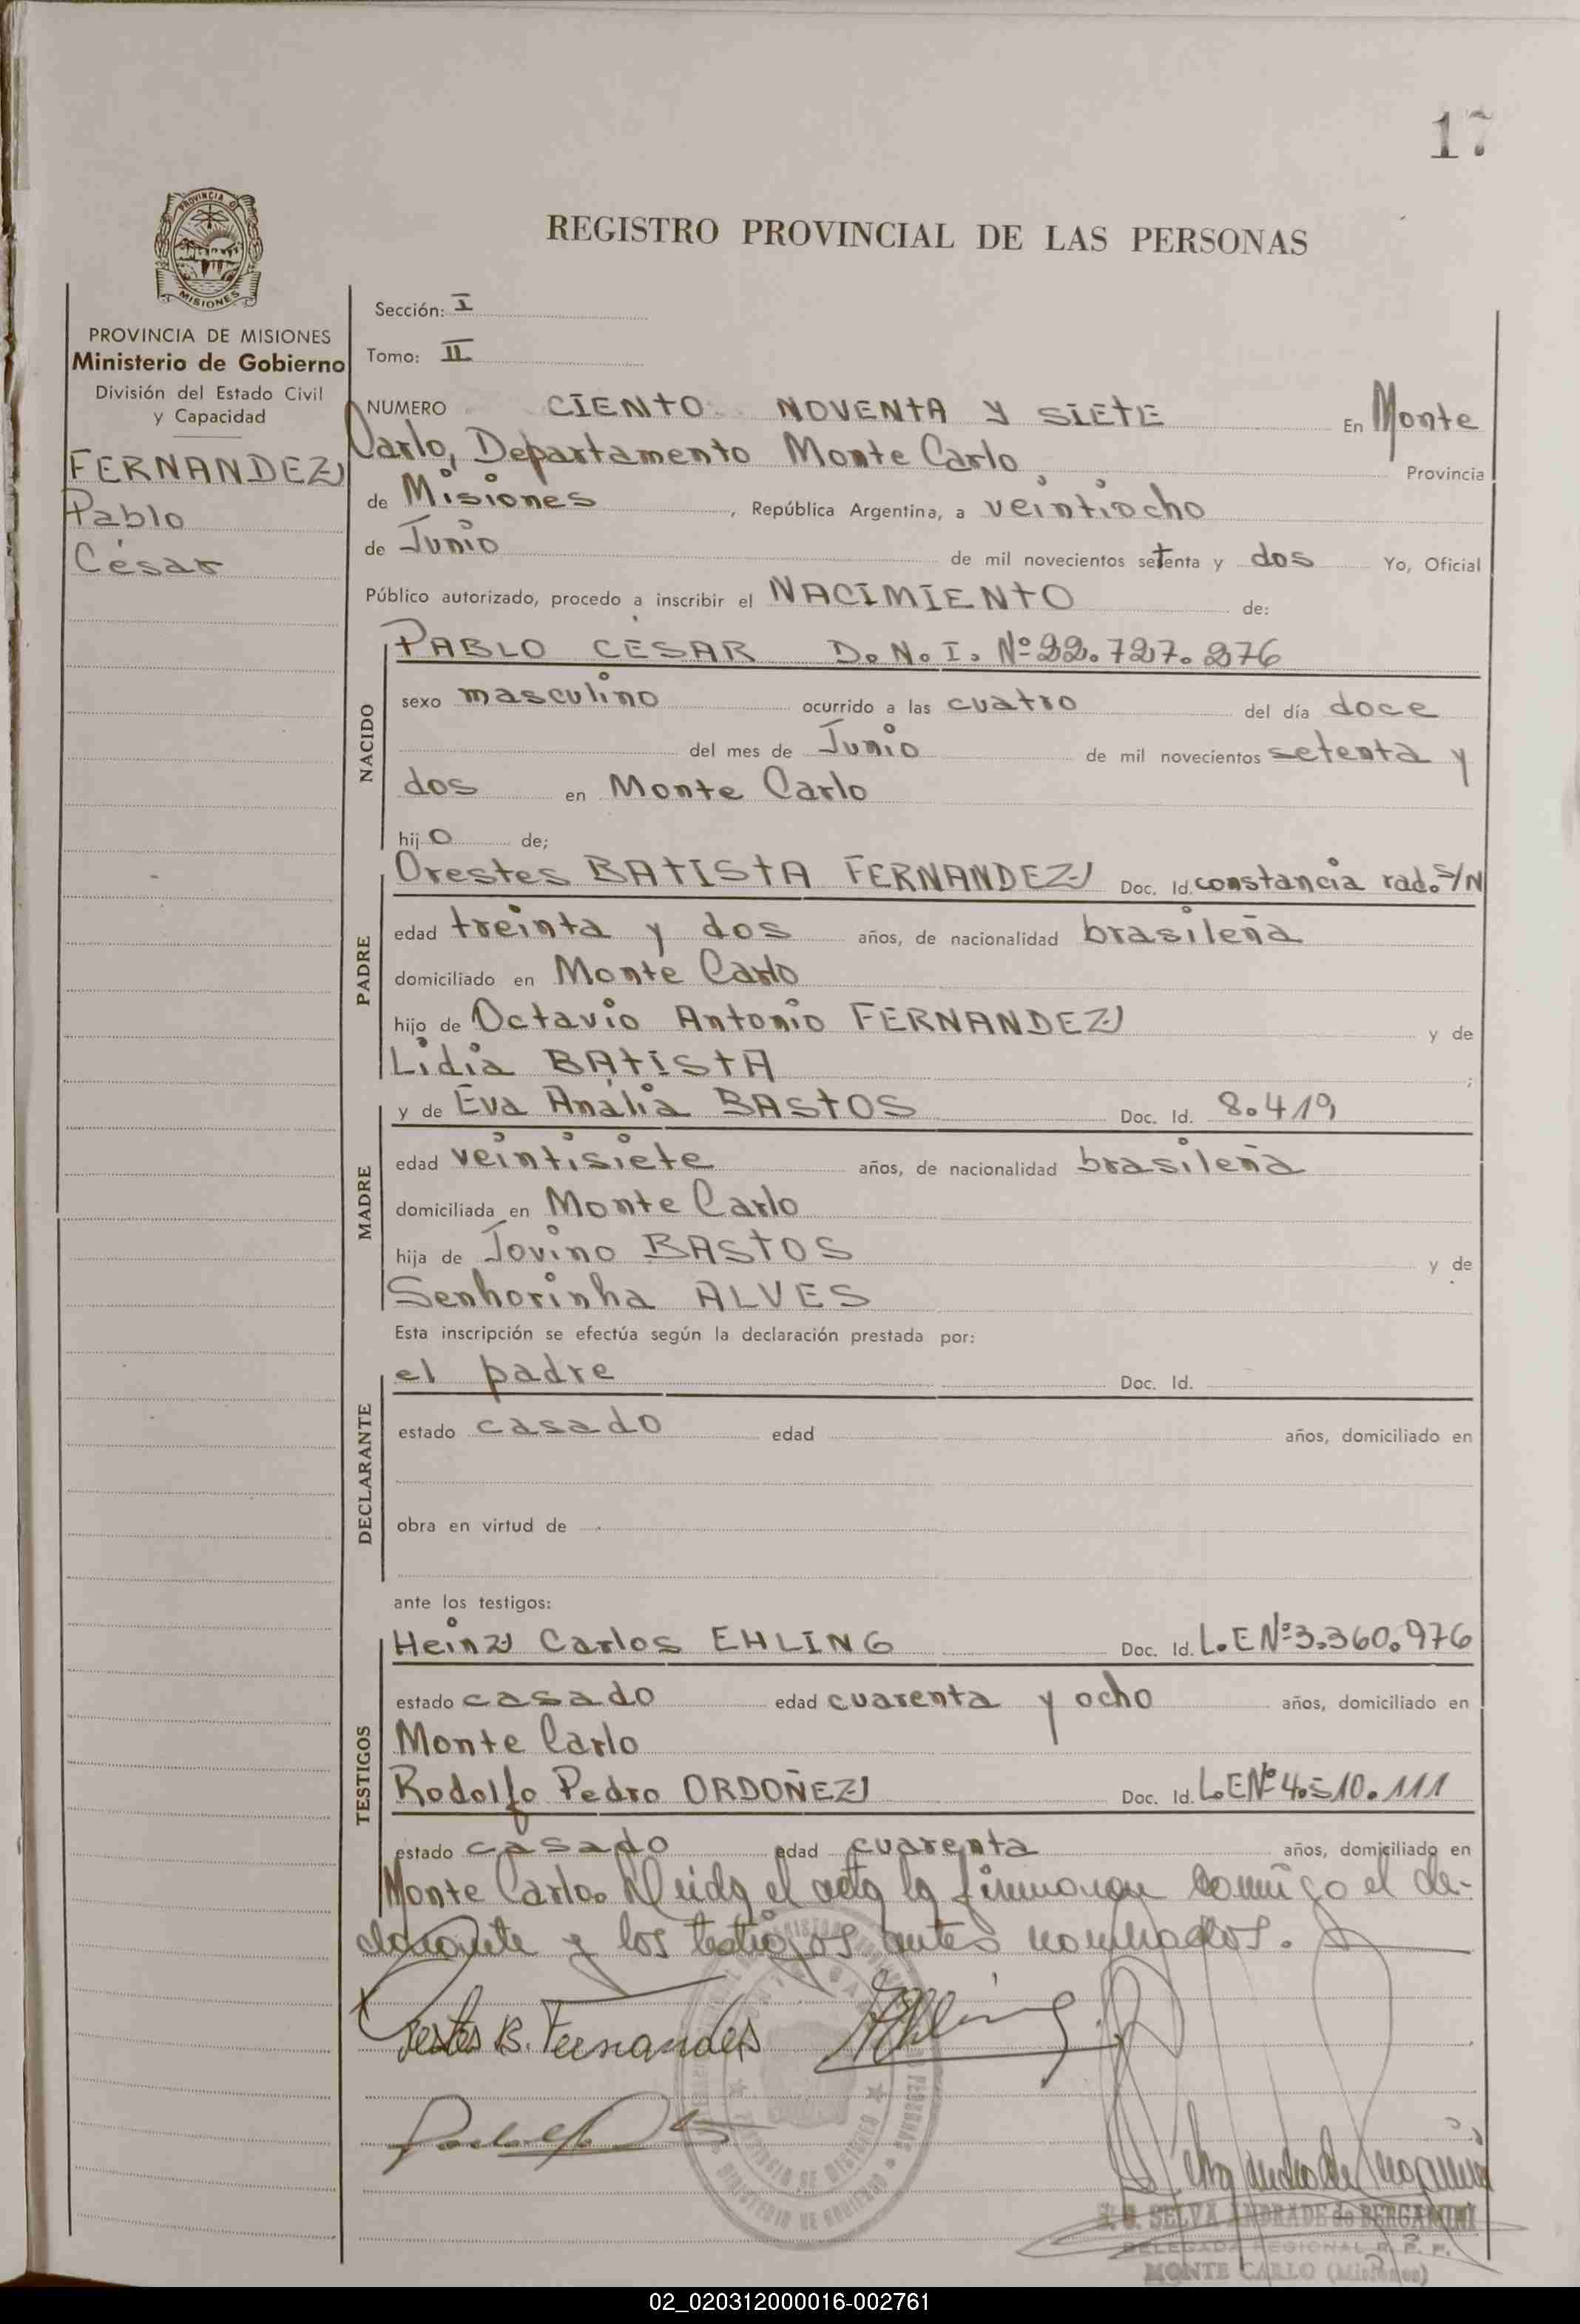 17
PROVINCIA D
MISIONES
REGISTRO PROVINCIAL DE LAS PERSONAS
PROVINCIA DE MISIONES
Ministerio de Gobierno
División del Estado Civil
y Capacidad
FERNANDEZ
Pablo
César
Sección: I
Tomo: II
NUMERO CIENTO NOVENTA Y SIETE En Monte
Carlo, Departamento Monte Carlo Provincia
de Misiones, República Argentina, a veintiocho
de Junio de mil novecientos setenta y dos Yo, Oficial
Público autorizado, procedo a inscribir el NACIMIENTO de:
NACIDO
PABLO CÉSAR D.N.I. Nº 22.727.276
sexo masculino ocurrido a las cuatro del día doce
del mes de Junio de mil novecientos setenta y
dos en Monte Carlo
hijo de;
PADRE
Orestes BATISTA FERNANDEZ Doc. Id. constancia rad. S/N
edad treinta y dos años, de nacionalidad brasileña
domiciliado en Monte Carlo
hijo de Octavio Antonio FERNANDEZ y de
Lidia BATISTA ;
MADRE
y de Eva Analia BASTOS Doc. Id. 8.419
edad veintisiete años, de nacionalidad brasileña
domiciliada en Monte Carlo
hija de Jovino BASTOS y de
Senhorinha ALVES
Esta inscripción se efectúa según la declaración prestada por:
DECLARANTE
el padre Doc. Id.
estado casado edad años, domiciliado en
obra en virtud de
ante los testigos:
TESTIGOS
Heinz Carlos EHLING Doc. Id. L.E Nº 3.360.976
estado casado edad cuarenta y ocho años, domiciliado en
Monte Carlo
Rodolfo Pedro ORDOÑEZ Doc. Id. L.E Nº 4.510.111
estado casado edad cuarenta años, domiciliado en
Monte Carlo. Leida el acta la firmaron conmigo el de-
clarante y los testigos antes nombrados.
Orestes B. Fernandes
Ehling
SELVA ANDRADE de BERGAMINI
DELEGADA REGIONAL R. P. P.
MONTE CARLO (Misiones)
02_020312000016-002761